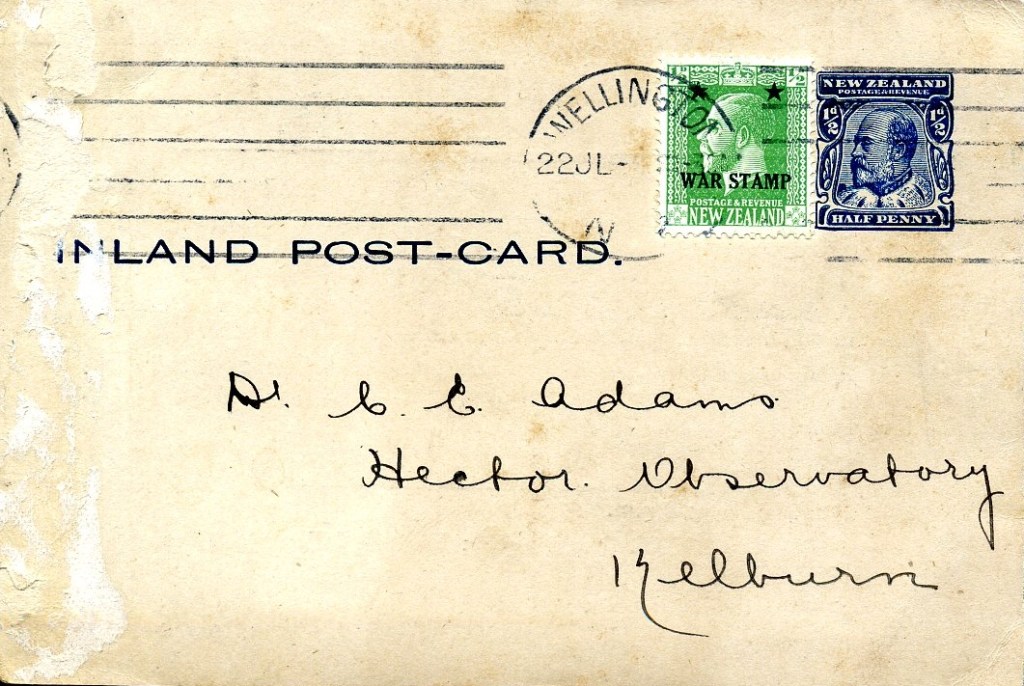 WELLINGTO
22JL-
N
½d ½
WAR STAMP
POSTAGE & REVENUE
NEW ZEALAND
NEW ZEALAND
POSTAGE & REVENUE
½d ½d
HALF PENNY
INLAND POST-CARD.
Dr. C. E. Adams
Hector. Observatory
Kelburn